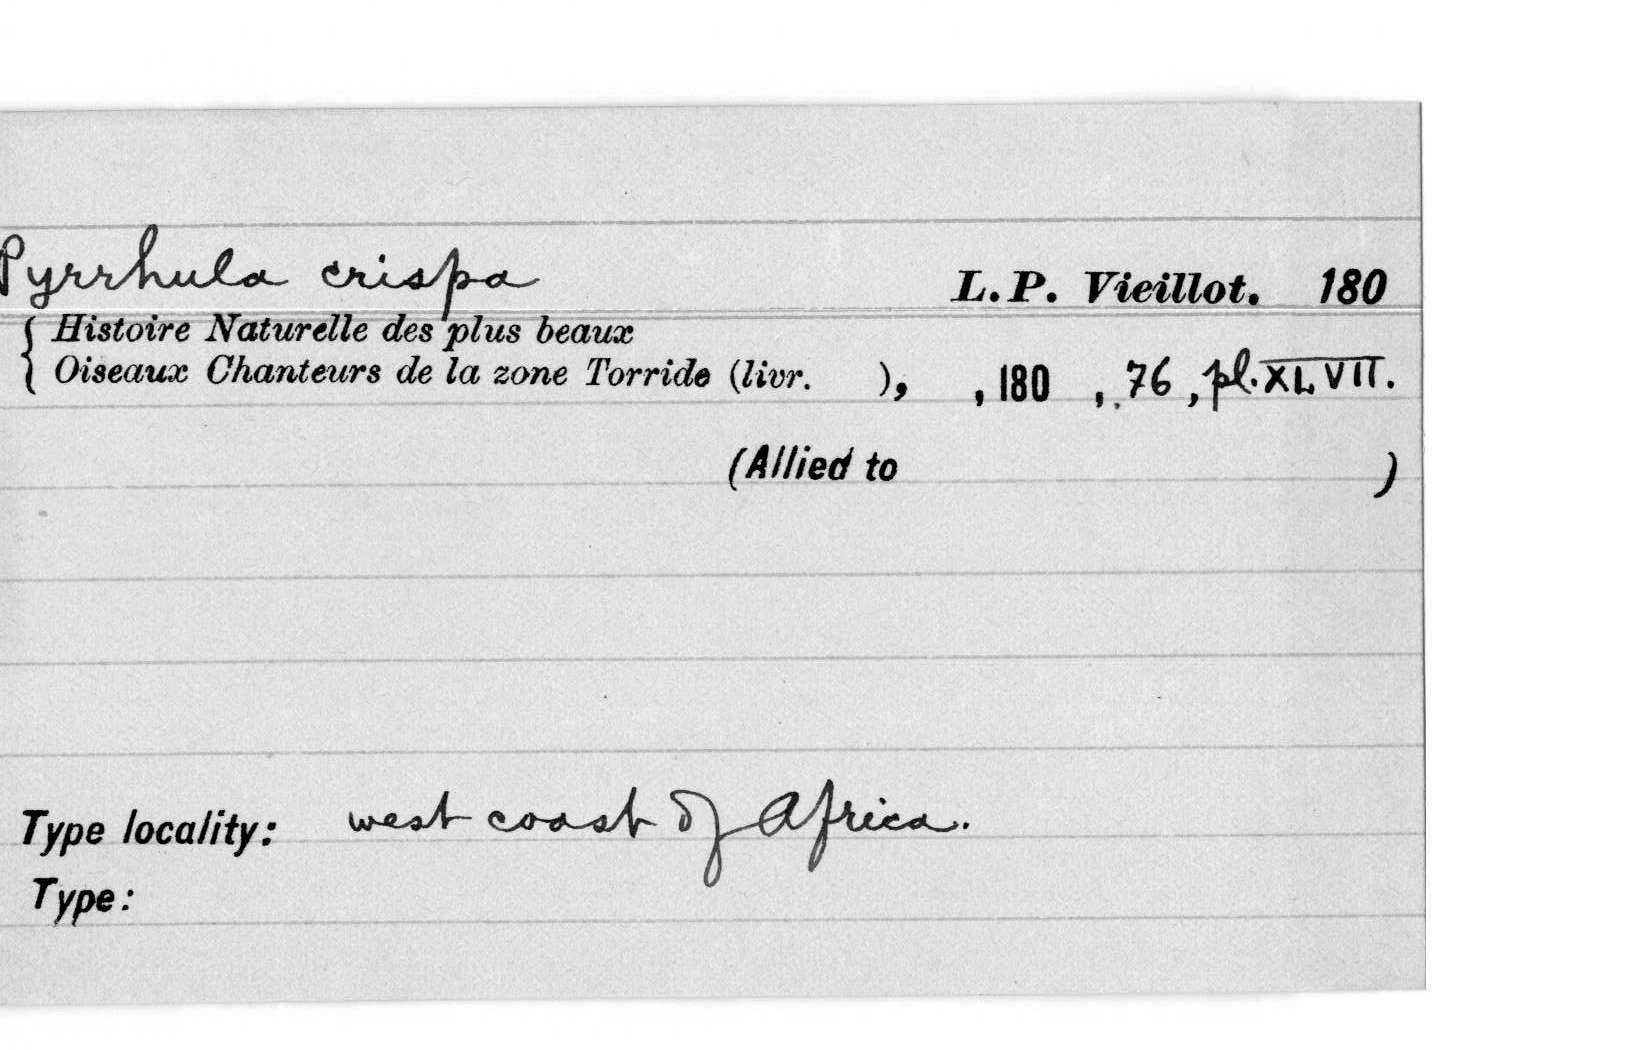 Pyrrhula crispa L.P. Vieillot. 180
{ Histoire Naturelle des plus beaux
Oiseaux Chanteurs de la zone Torride (livr. ), , 180 , 76 , pl. XLVII.
(Allied to )
Type locality: west coast of Africa.
Type: